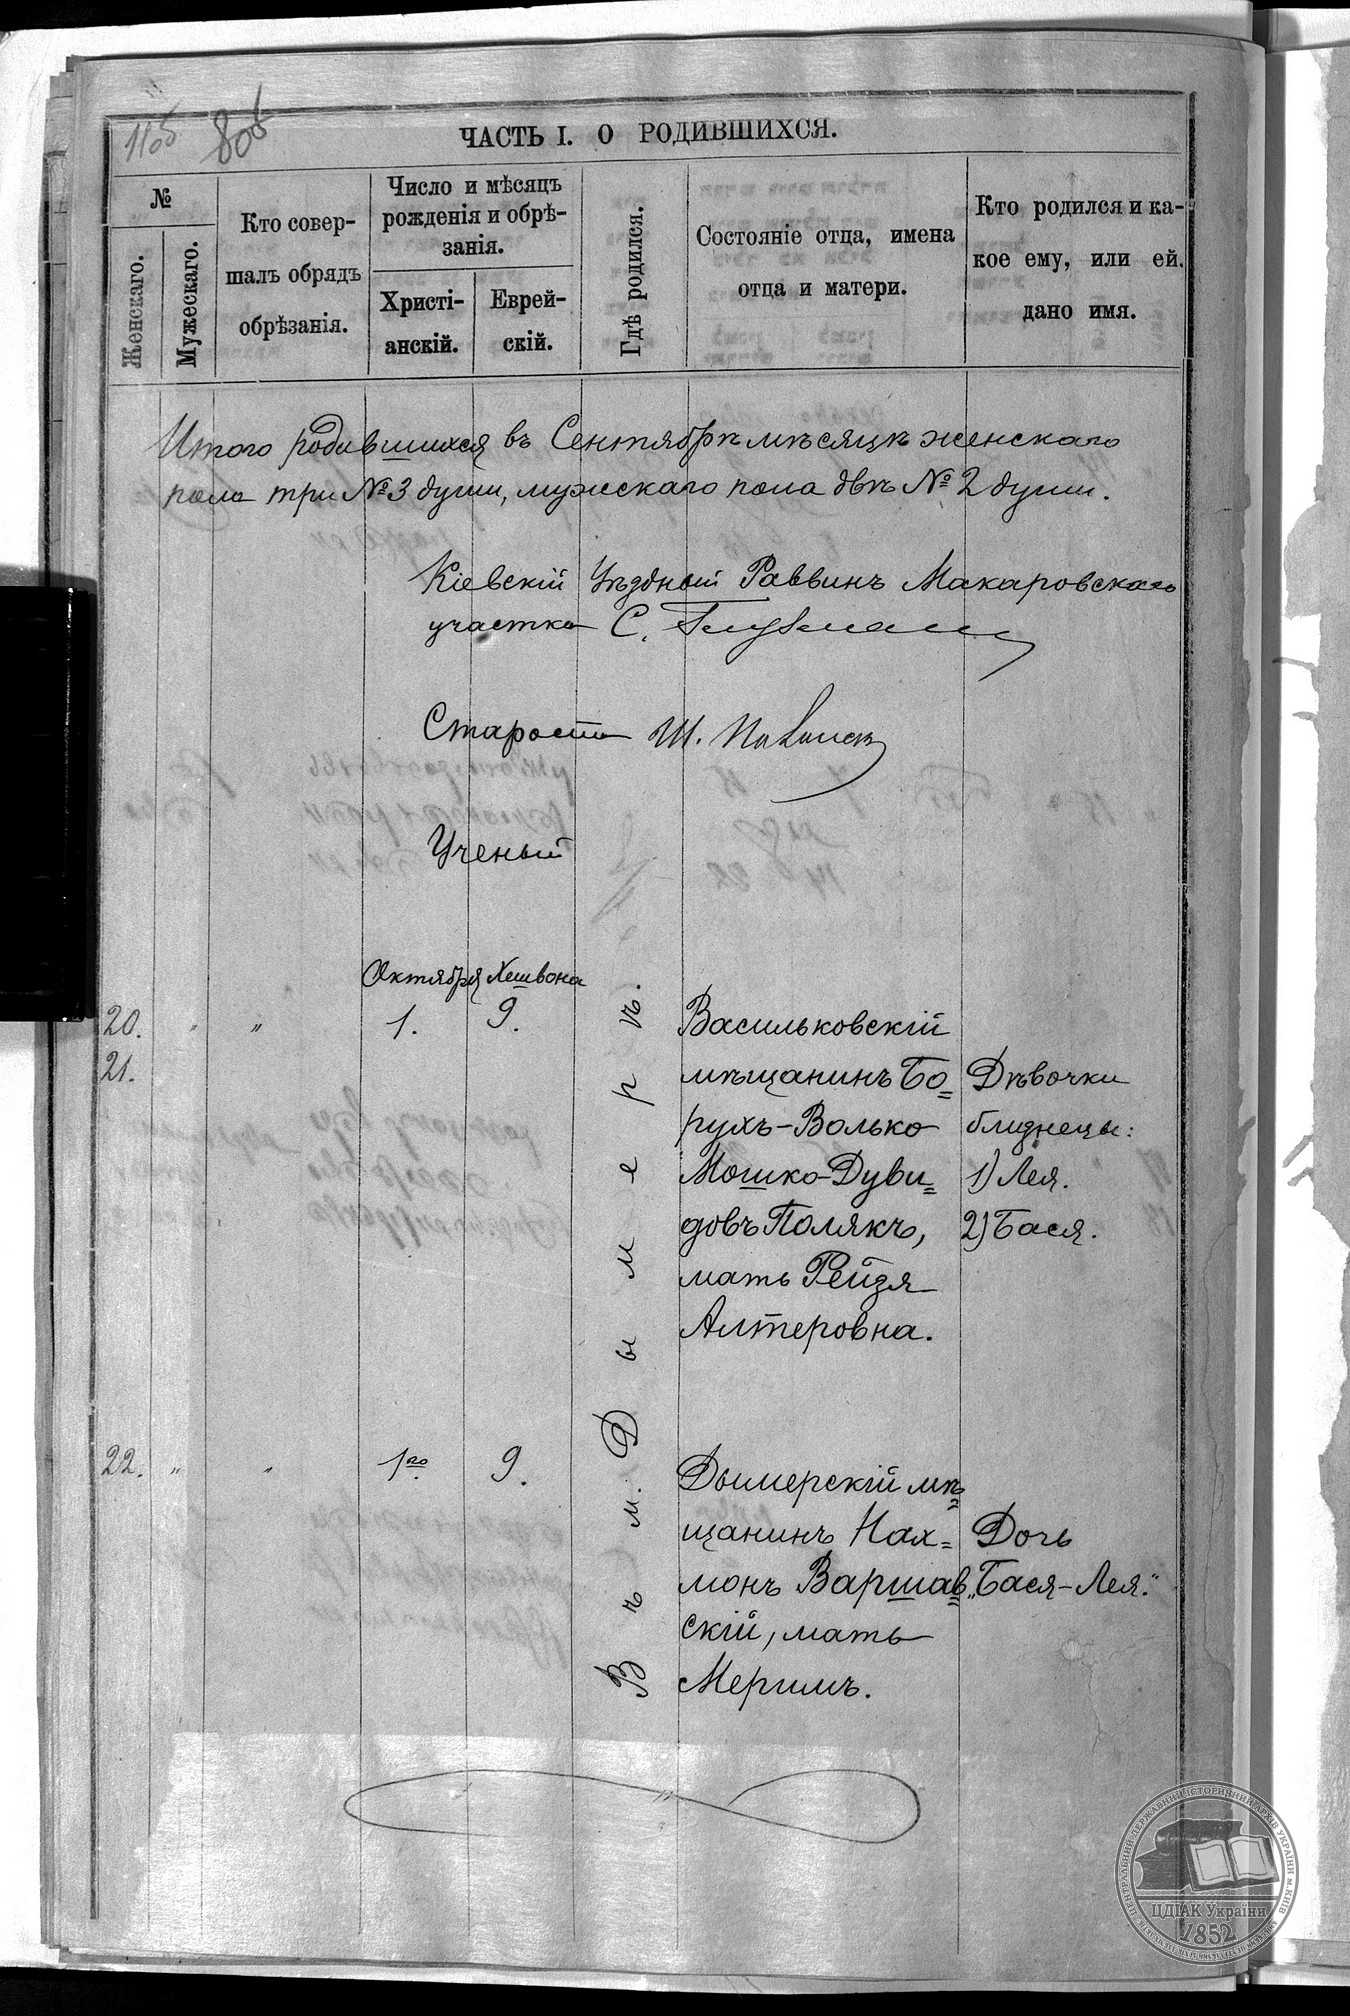 11об 80б
ЧАСТЬ I. О РОДИВШИХСЯ.
№
Женскаго.
Мужескаго.
Кто совер-
шалъ обрядъ
обрѣзанія.
Число и мѣсяцъ
рожденія и обрѣ-
занія.
Христі-
анскій.
Еврей-
скій.
Гдѣ родился.
Состояніе отца, имена
отца и матери.
Кто родился и ка-
кое ему, или ей.
дано имя.
Итого родившихся въ Сентябрѣ мѣсяцѣ женскаго
пола три №3 души, мужскаго пола двѣ №2 души.
Кіевскій Уѣздный Раввинъ Макаровскаго
участка С.
Староста Ш.
Ученый
Октября Хешвона
20. " " 1. 9.
21.
Въ м. Дымерѣ.
Васильковскій
мѣщанинъ Бо=
рухъ-Волько
Мошко-Дуви=
довъ Полякъ,
мать Рейзя
Алтеровна.
Дѣвочки
близнецы:
1) Лея.
2) Бася.
22. " " 1го 9.
Дымерскій мѣ=
щанинъ Нах=
монъ Варшав=
скій, мать
Меримъ.
Дочь
„Бася-Лея."
ЦЕНТРАЛЬНИЙ ДЕРЖАВНИЙ ІСТОРИЧНИЙ АРХІВ УКРАЇНИ м.КИЇВ
ЦДІАК України
1852